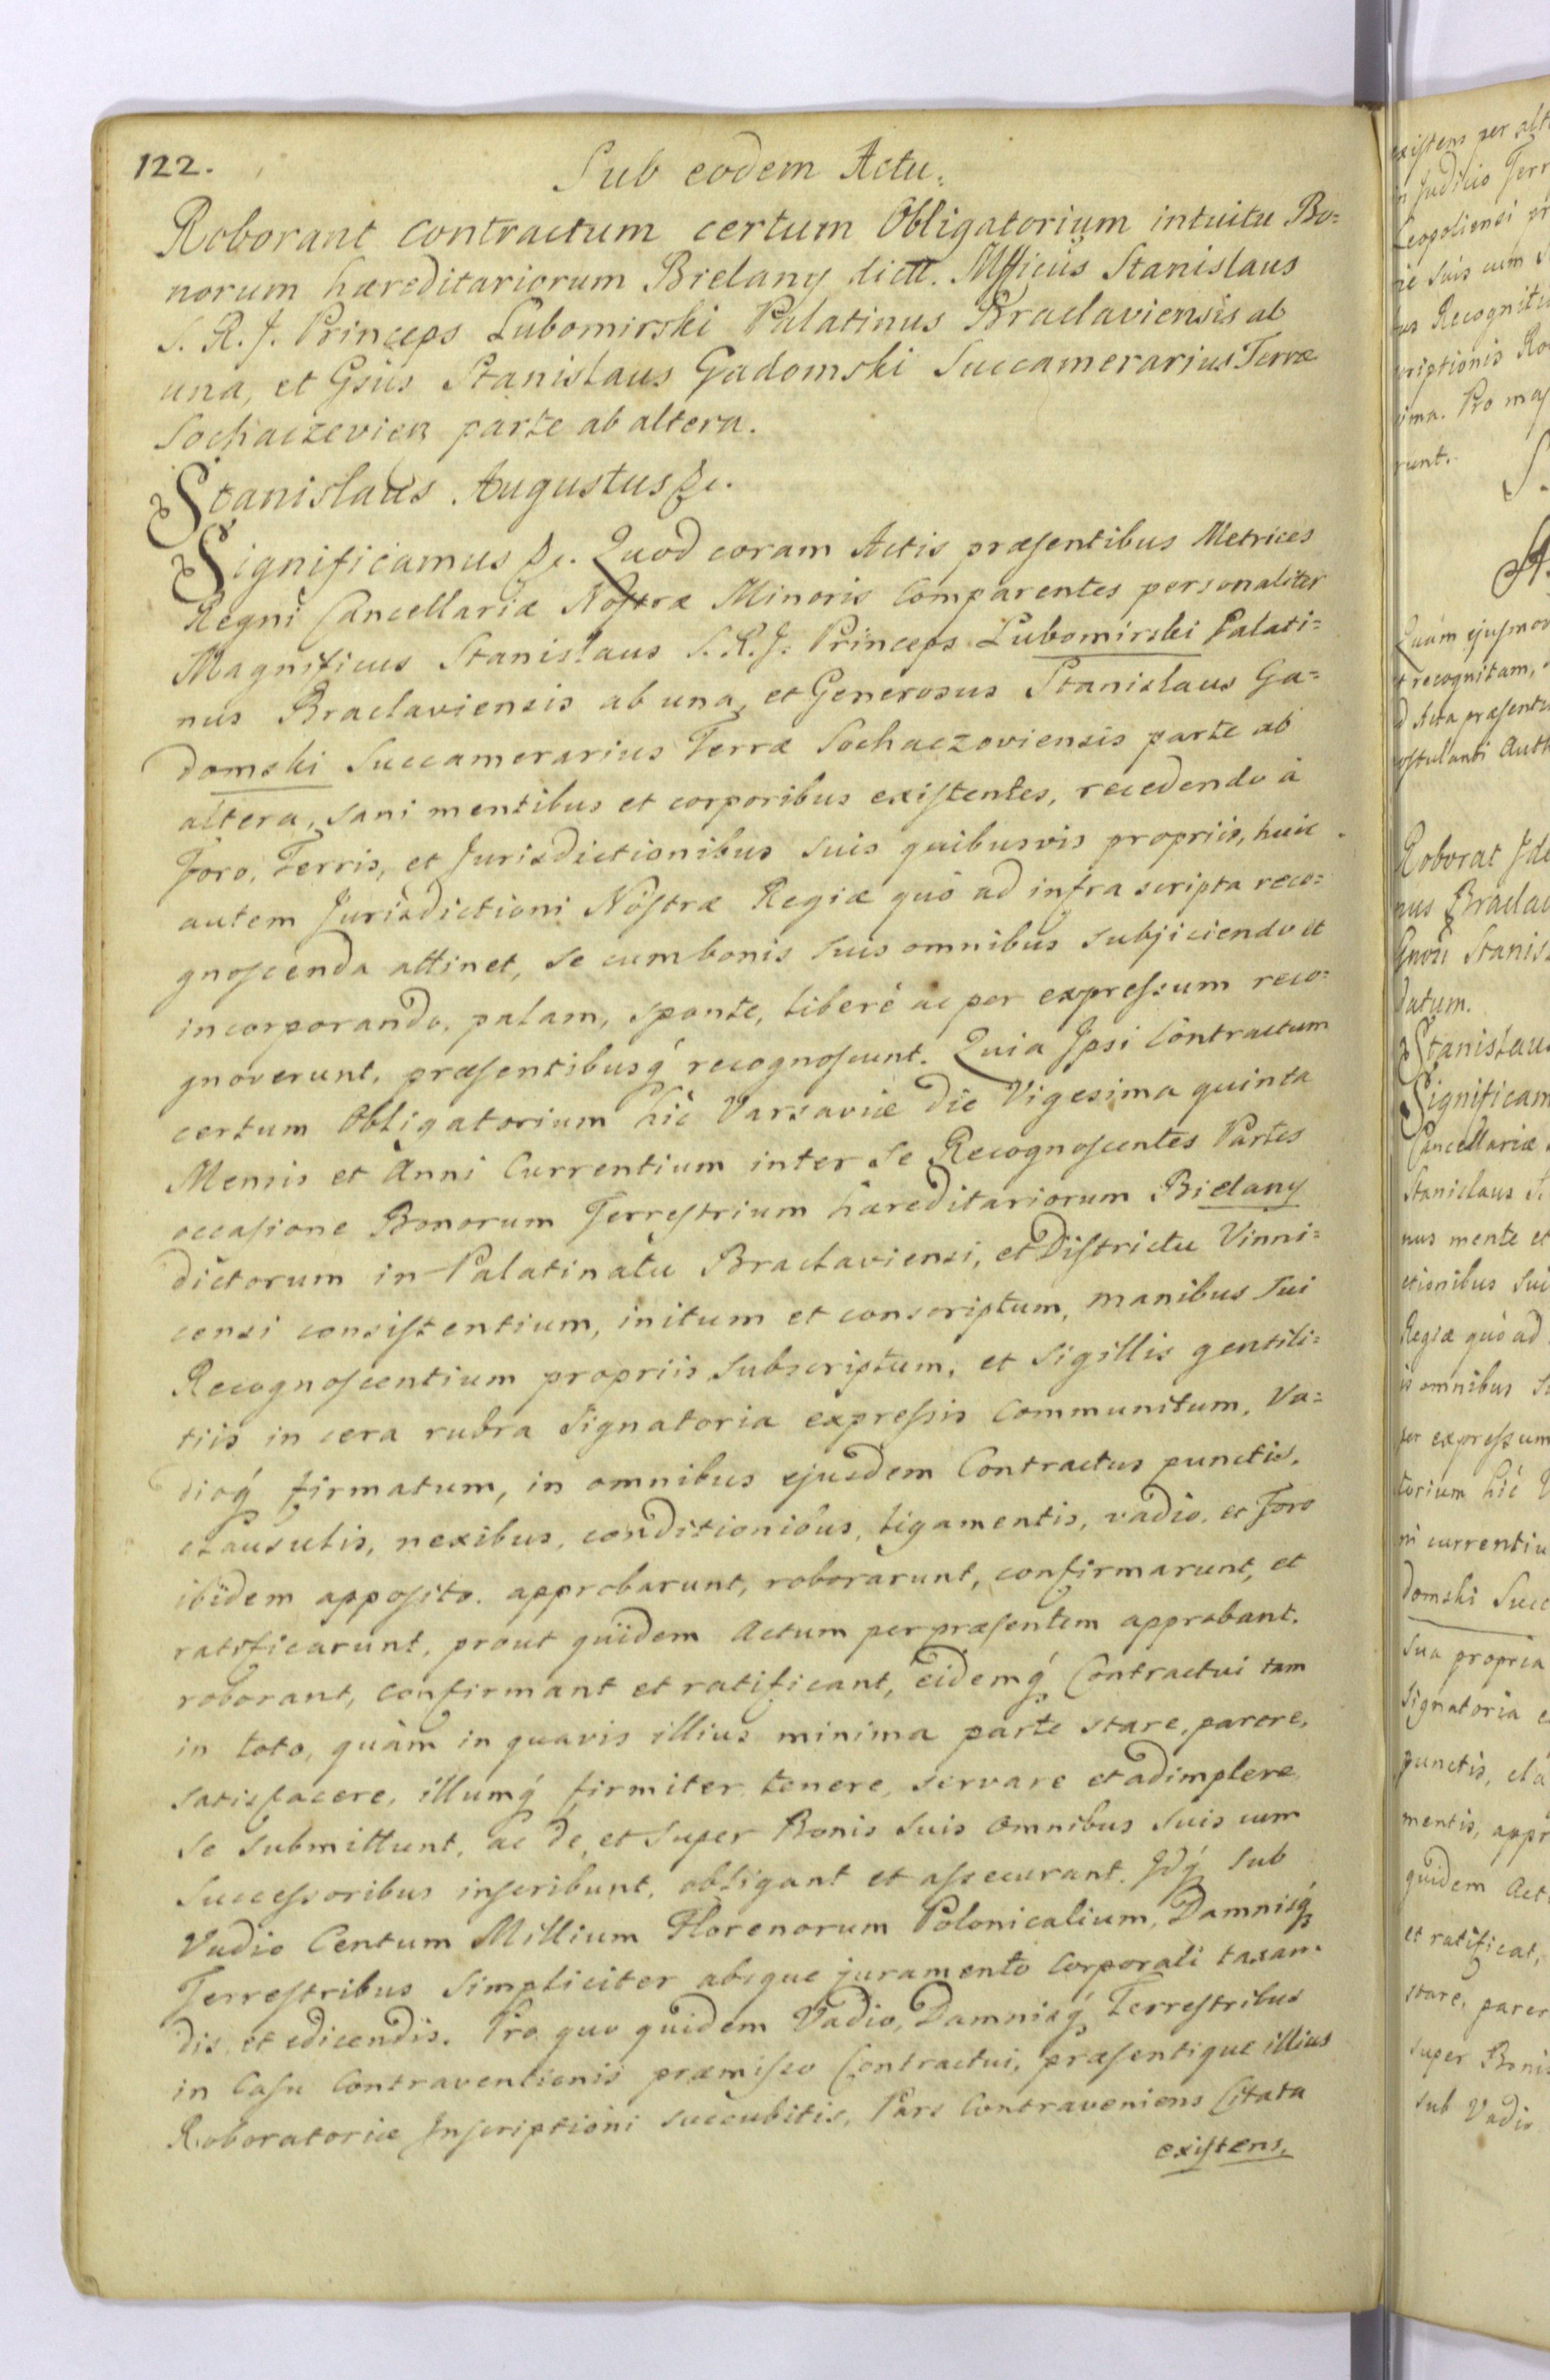 122.
Sub eodem Actu.
Roborant contractum certum Obligatorium intuitu Bo=
norum hæreditariorum Bielany dictt. Mfficus Stanislaus
S. R. J. Princeps Lubomirski Palatinus Braclaviensis ab
una, et Gsus Stanislaus Gadomski Succamerarius Terræ
Sochaczevien parte ab altera.
Stanislaus Augustus &c.
Significamus &c. Quod coram Actis præsentibus Metrices
Regni Cancellariæ Nostræ Minoris Comparentes personaliter
Magnificus Stanislaus S. R. J. Princeps Lubomirski Palati=
nus Braclaviensis ab una, et Generosus Stanislaus Ga=
domski Succamerarius Terræ Sochaczoviensis parte ab
altera, sani mentibus et corporibus existentes, recedendo à
Foro, Terris, et Jurisdictionibus suis quibusvis propriis, huic
autem Jurisdictioni Nostræ Regiæ quò ad infra scripta reco=
gnoscenda attinet, se cum bonis suis omnibus subjiciendo et
incorporando, palam, sponte, liberè ac per expressum reco=
gnoverunt, præsentibusq́ recognoscunt. Quia Ipsi Contractum
certum Obligatorium hìc Varsaviæ die Vigesima quinta
Mensis et Anni Currentium inter se Recognoscentes Partes
occasione Bonorum Terrestrium hæreditariorum Bielany
dictorum in Palatinatu Braclaviensi, et Districtu Vinni=
censi consistentium, initum et conscriptum, manibus sui
Recognoscentium propriis subscriptum, et sigillis gentili=
tiis in cera rubra signatoria expressis communitum, Va=
dioq́ firmatum, in omnibus ejusdem Contractus punctis,
clausulis, nexibus, conditionibus, ligamentis, vadio, et Foro
ibidem apposito. approbarunt, roborarunt, confirmarunt, et
ratificarunt, prout quidem Actum per præsentem approbant,
roborant, confirmant et ratificant, eidemq́ Contractui tam
in toto, quàm in quavis illius minima parte stare, parere,
satisfacere, illumq́ firmiter tenere, servare et adimplere
se submittunt, ac de, et super Bonis suis omnibus suis cum
Successoribus inscribunt, obligant et assecurant. Idq́ sub
Vadio Centum Millium Florenorum Polonicalium, Damnisq́
Terrestribus simpliciter absque juramento corporali taxan=
dis, et edicendis. Pro quo quidem Vadio, Damnisq́ Terrestribus
in Casu Contraventionis præmisso Contractui, præsentique illius
Roboratoriæ Inscriptioni succubitis, Pars Contraveniens Citata
existens,
existens per
in Judicio Terr
Leopoliensi
Recognit
criptionis
Pro maj
runt.
Quàm ejusmo
recognitam,
Acta præsent
Roborat
nus Bracla
Stanis
datum.
Stanislaus
Significam
Cancellariæ
Stanislaus
nus mente et
ctionibus sui
Regiæ quò ad
omnibus
per expressum
torium hìc
ni currentiu
domski Succ
sua propria
signatoria
punctis, cla
mentis, appr
quidem Act
et ratificat,
stare, parer
super Boni
sub Vadio